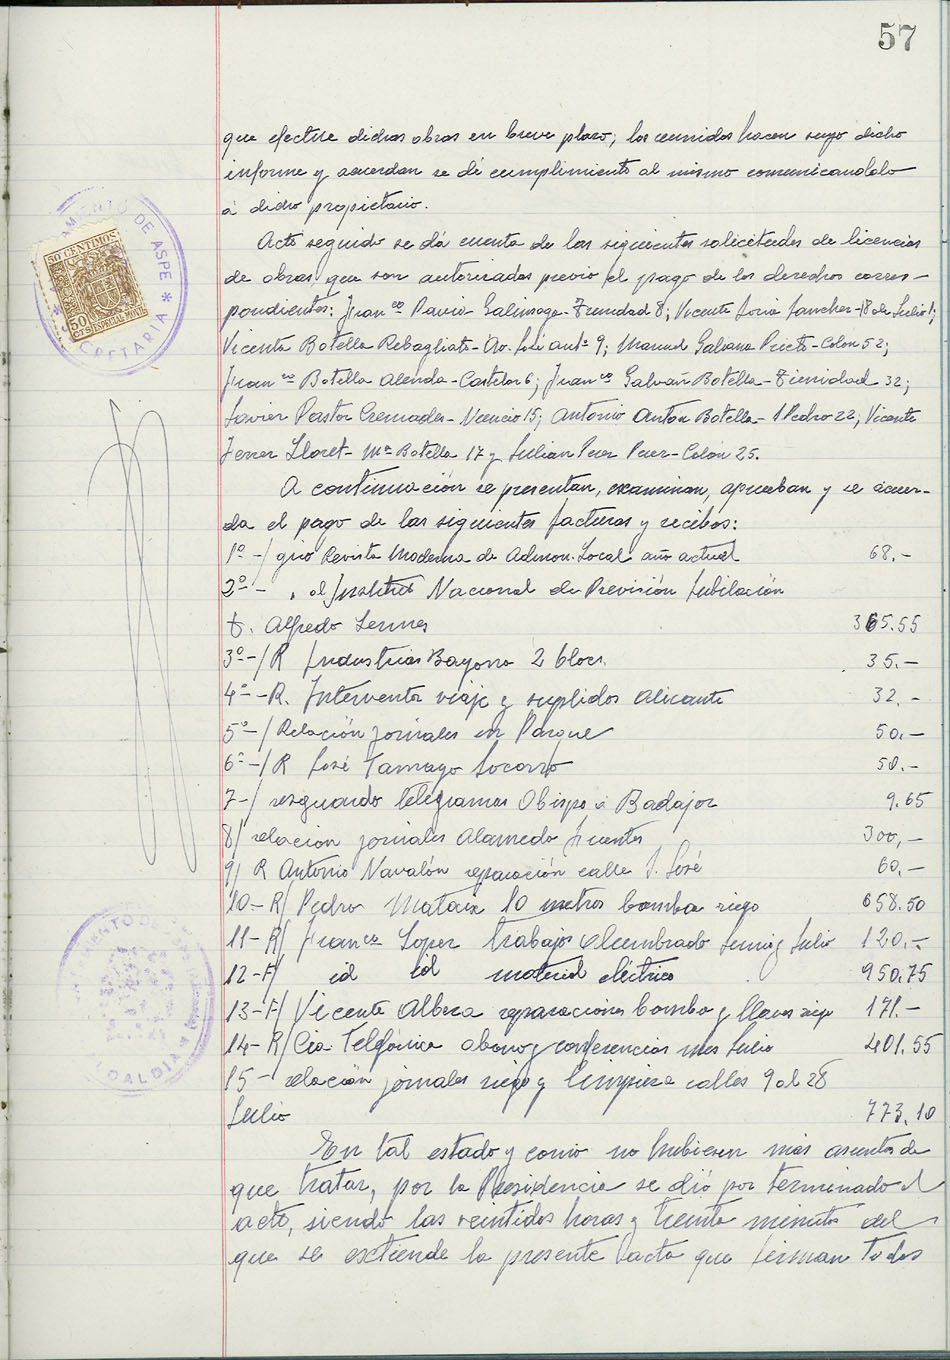 57
que efectue dichas obras en breve plazo; los reunidos hacen suyo dicho
informe y acuerdan se dé cumplimiento al mismo comunicandolo
á dicho propietario.
Acto seguido se dá cuenta de las siguientes solicitudes de licencias
de obras que son autorizadas previo el pago de los derechos corres-
pondientes: Franco Pavia Galinsoga-Trinidad 8; Vicente Soria Sanchez-18 de Julio 1;
Vicente Botella Rebagliato-Av. José Antº 9; Manuel Galvana Prieto-Colon 52;
Franco Botella Alenda-Castelar 6; Franco Galvañ Botella-Trinidad 32;
Javier Pastor Cremades- 15; Antonio Anton Botella-S Pedro 22; Vicente
Ferrer Lloret-Mª Botella 17 y Julian Perez Perez-Colón 25.
A continuación se presentan, examinan, aprueban y se acuer-
da el pago de las siguientes facturas y recibos:
1º-/ giro Revista Moderna de Admon. Local año actual 68.-
2º- " al Instituto Nacional de Previsión Jubilación
D. Alfredo 365.55
3º-/R Industrias Bayona 2 blocs. 35.-
4º-R. Interventor viaje y suplidos Alicante 32.-
5º-/Relación jornales en Parque 50.-
6º-/R José Tamayo Socorro 50.-
7-/ resguardo telegramas Obispo á Badajoz 9.65
8/ relacion jornales Alameda fuentes 300,-
9/ R Antonio Navalón reparación calle S. José 60.-
10-R/ Pedro Mataix 10 metros bomba riego 658.50
11-R/ Franco Lopez trabajos alumbrado Junio y Julio 120.-
12-F/ id id material eléctrico 950.75
13-F/ Vicente Albeza reparaciones bomba y llaves riego 171.-
14-R/ Cia. Telefónica abono y conferencias mes Julio 401.55
15- relación jornales riego y limpieza calles 9 al 28
Julio 773.10
En tal estado y como no hubiesen más asuntos de
que tratar, por la Presidencia se dió por terminado el
acto, siendo las veintidos horas y treinta minutos del
que se extiende la presente acta que firman todos
AYUNTAMIENTO DE ASPE * SECRETARIA *
50 CENTIMOS
50 CTS ESPECIAL MOVIL
AYUNTAMIENTO DE ASPE (Alicante)
ALCALDIA